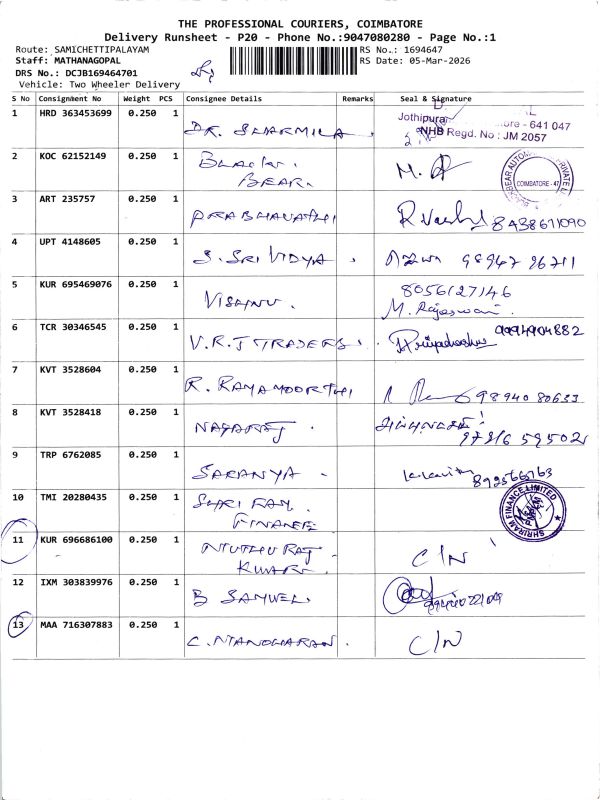 THE PROFESSIONAL COURIERS, COIMBATORE
Delivery Runsheet - P20 - Phone No.:9047080280 - Page No.:1
Route: SAMICHETTIPALAYAM RS No.: 1694647
Staff: MATHANAGOPAL RS Date: 05-Mar-2026
DRS No.: DCJB169464701
Vehicle: Two Wheeler Delivery
S No Consignment No Weight PCS Consignee Details Remarks Seal & Signature
1 HRD 363453699 0.250 1 DR. SHARMILA
Jothipura ore - 641 047
NHB Regd. No : JM 2057
2 KOC 62152149 0.250 1 BLACK
BEAR.
COIMBATORE - 47
3 ART 235757 0.250 1 PRABHAVATHI 8438671090
4 UPT 4148605 0.250 1 S. SRIVIDYA . 98947 26711
5 KUR 695469076 0.250 1 VISHNU . 8056127146
M. Rajeswari
6 TCR 30346545 0.250 1 V.R.J TRADERS . Priyadharshni 9994904882
7 KVT 3528604 0.250 1 R. RAMAMOORTHI 98940 80633
8 KVT 3528418 0.250 1 NAGARAJ . 97916 59502
9 TRP 6762085 0.250 1 SARANYA -
10 TMI 20280435 0.250 1 SHRI RAM
FINANCE
SHRIRAM FINANCE LIMITED
11 KUR 696686100 0.250 1 MUTHURAJ
KUMAR . C/N
12 IXM 303839976 0.250 1 B SAMUEL .
13 MAA 716307883 0.250 1 C. MANOHARAN . C/N